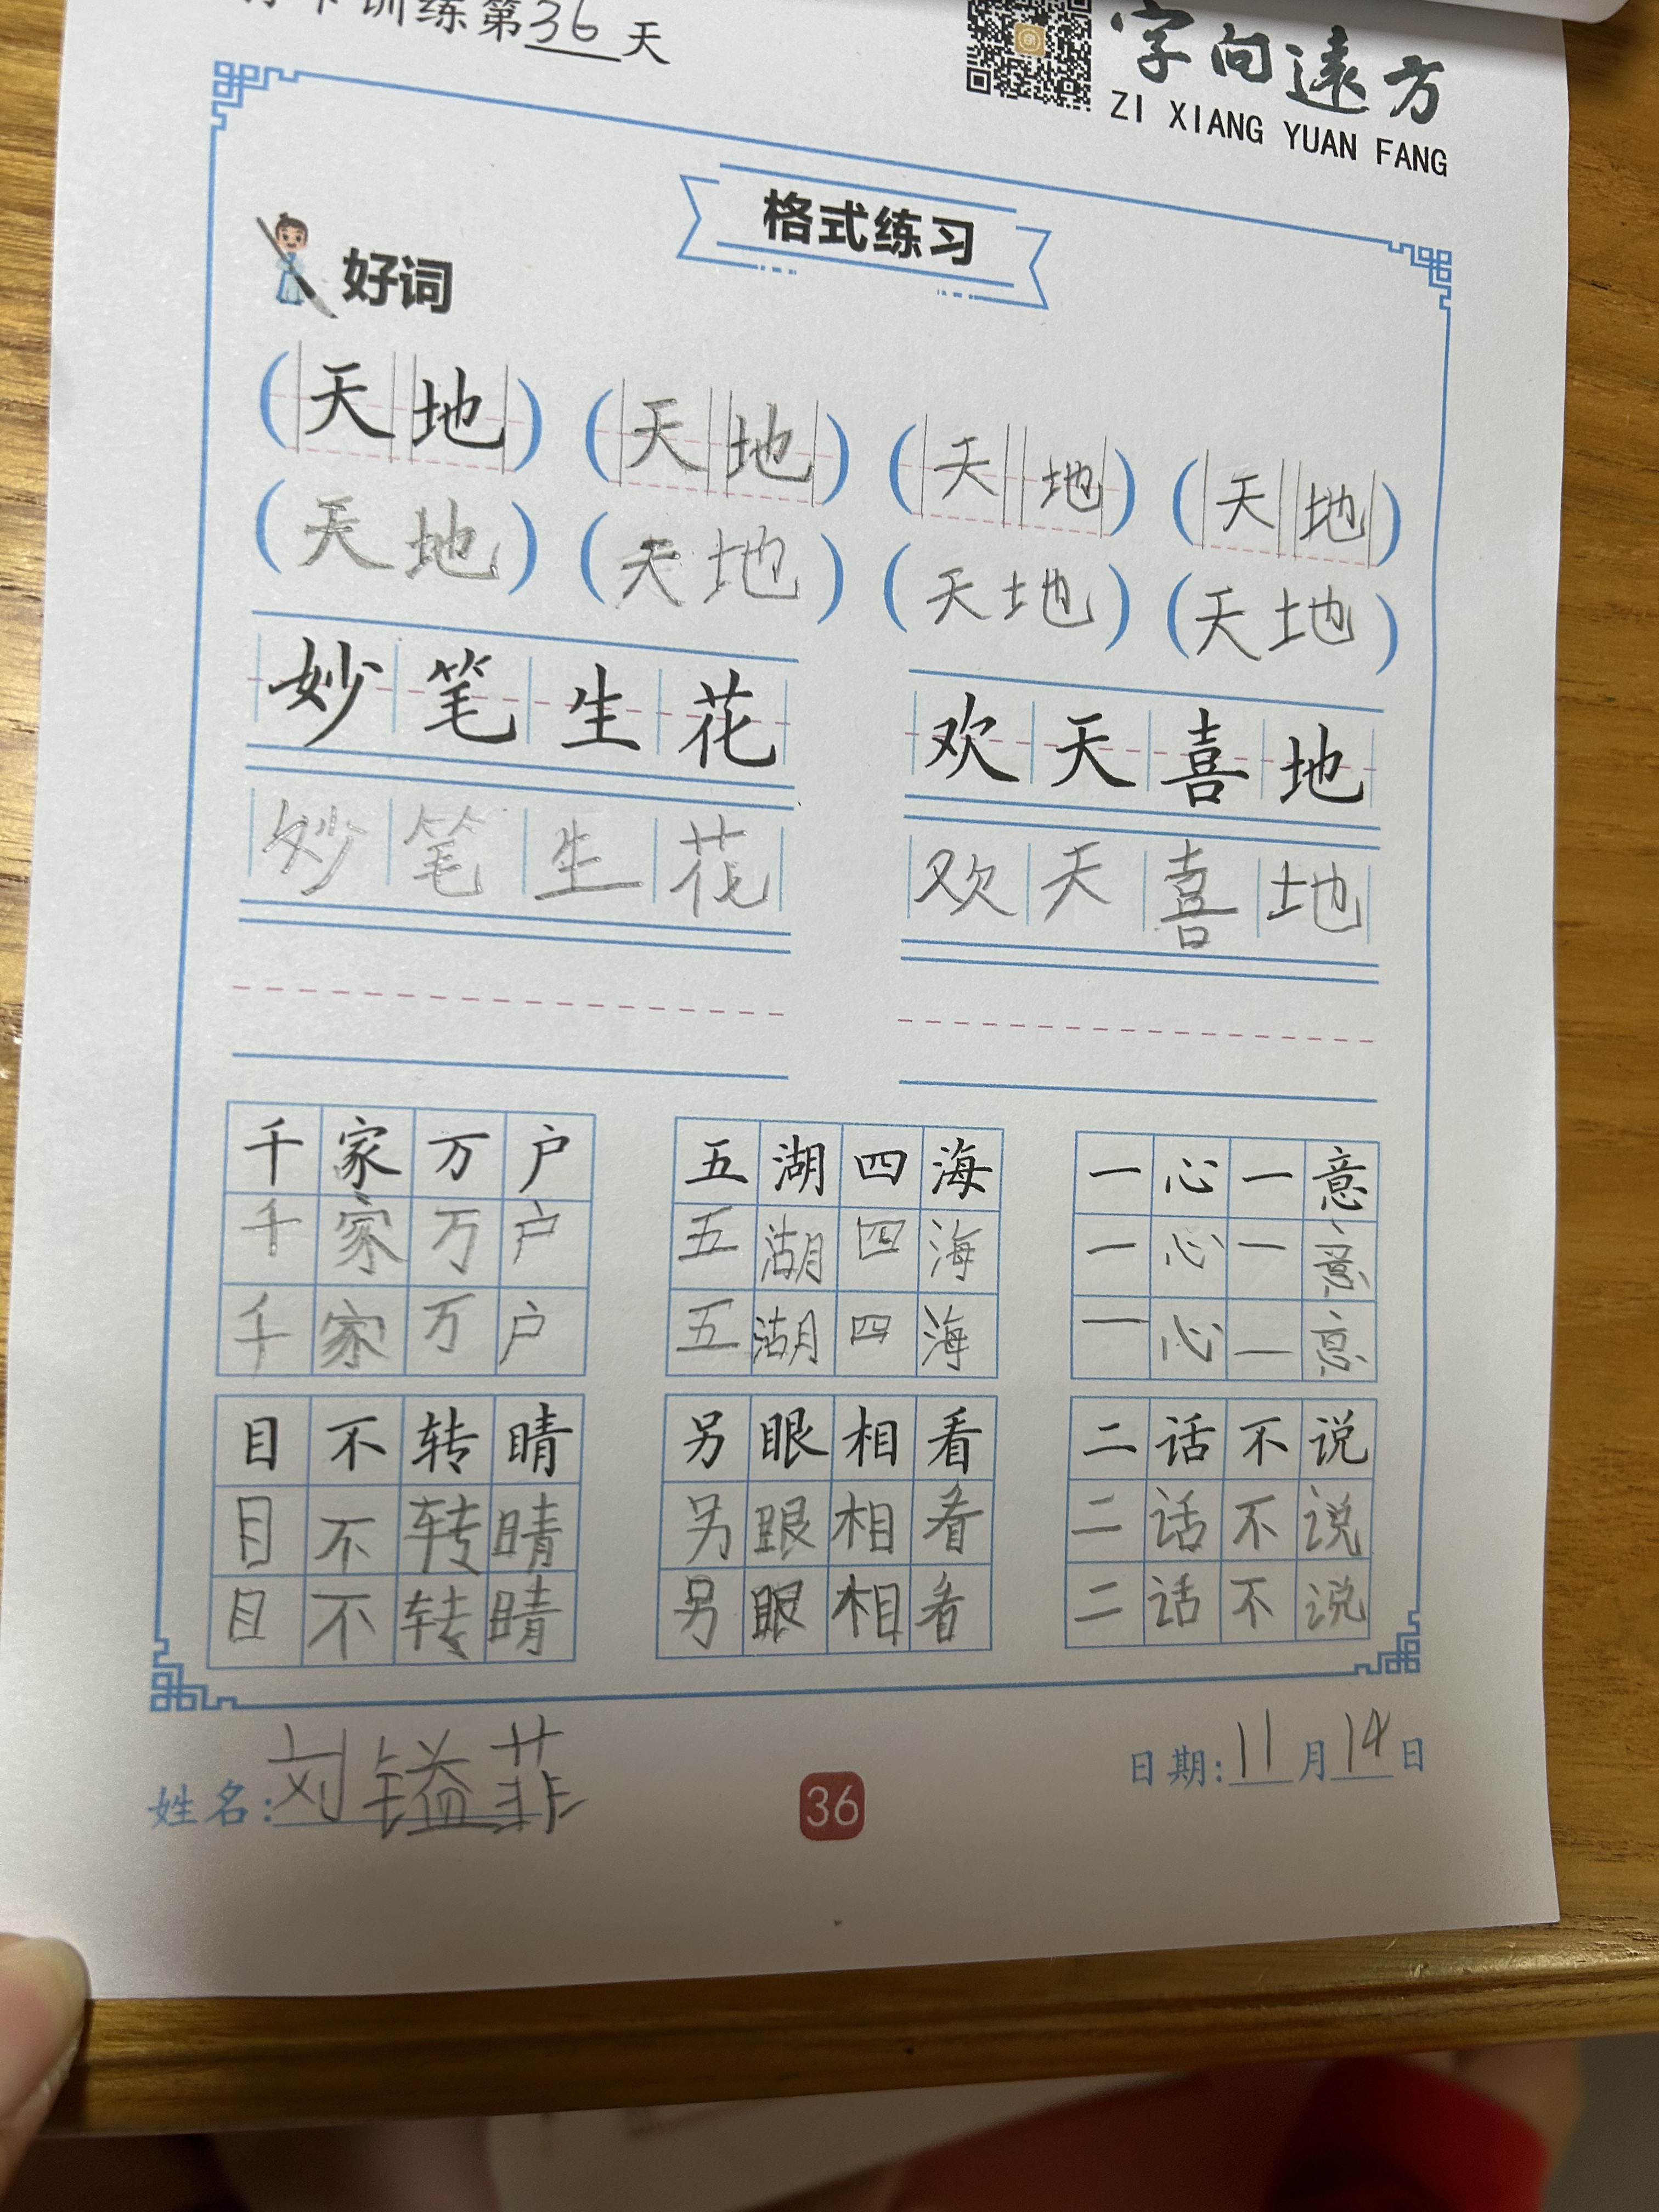 训练第36天
字向遠方
ZI XIANG YUAN FANG
格式练习
好词
(天地) (天地) (天地) (天地)
(天地) (天地) (天地) (天地)
妙笔生花 欢天喜地
妙笔生花 欢天喜地
千家万户 五湖四海 一心一意
千家万户 五湖四海 一心一意
千家万户 五湖四海 一心一意
目不转睛 另眼相看 二话不说
目不转睛 另眼相看 二话不说
目不转睛 另眼相看 二话不说
姓名:刘镒菲 36 日期:11月14日